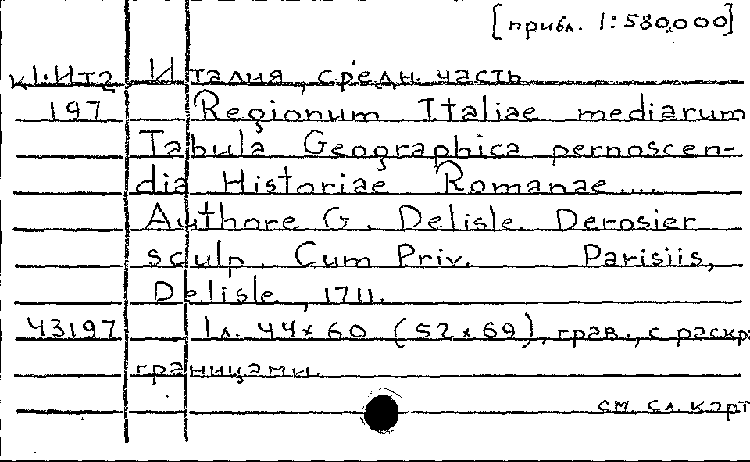 [прибл. 1:580,000]
К1:Ит2 Италия, средн. часть
197 Regionum Italiae mediarum
Tabula Geographica pernoscen-
dia Historiae Romanae....
Authore G. Delisle. Derosier
sculp. Cum Priv. Parisiis,
Delisle, 1711.
43197 1 л. 44x60 (52x69), грав., с раскр.
границами.
см. сл. карт